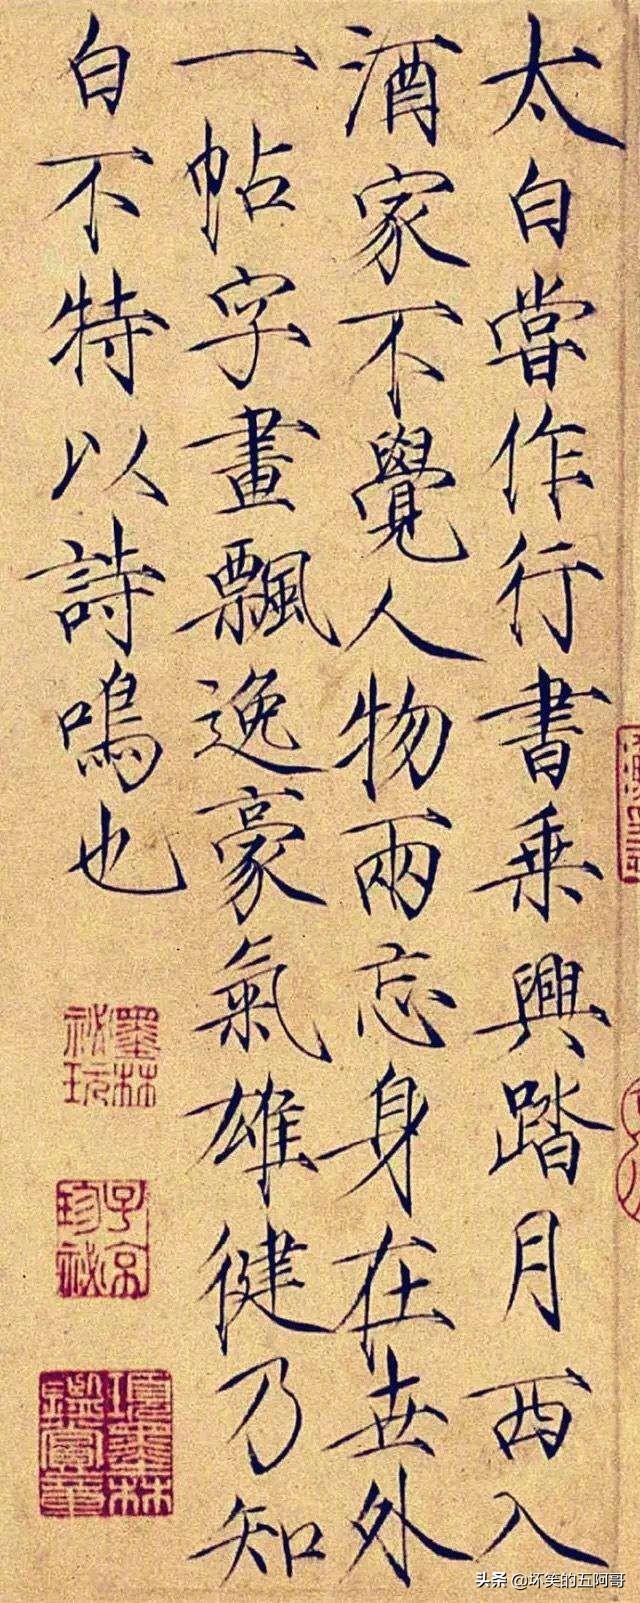 太白嘗作行書乗興踏月西入
酒家不覺人物兩忘身在世外
一帖字畫飄逸豪氣雄健乃知
白不特以詩鳴也
墨林
祕玩
子京
珍祕
項墨林
鑑賞章
头条 @坏笑的五阿哥